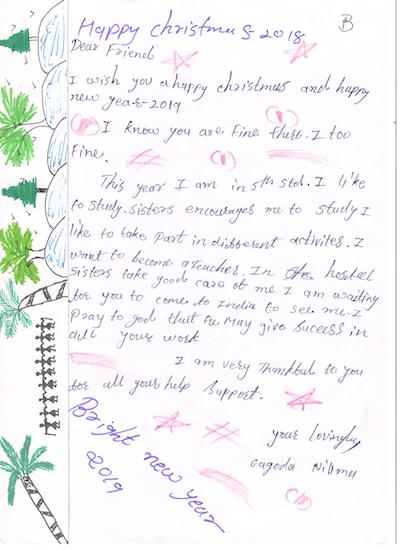 Happy christmas 2018
B
Dear Friend
I wish you a happy christmas and happy
new year-2019
I know you are fine there. I too
Fine.
This year I am in 5th std. I like
to study. Sisters encourages me to study I
like to take part in different activites. I
want to become a Teacher. In the hostel
Sisters take good care of me. I am waiting
for you to come to India to see me. I
Pray to god that He May give success in
all your work
I am very Thankful to you
for all your help support.
your lovingly,
Gagoda Nillma
Bright new year
2019